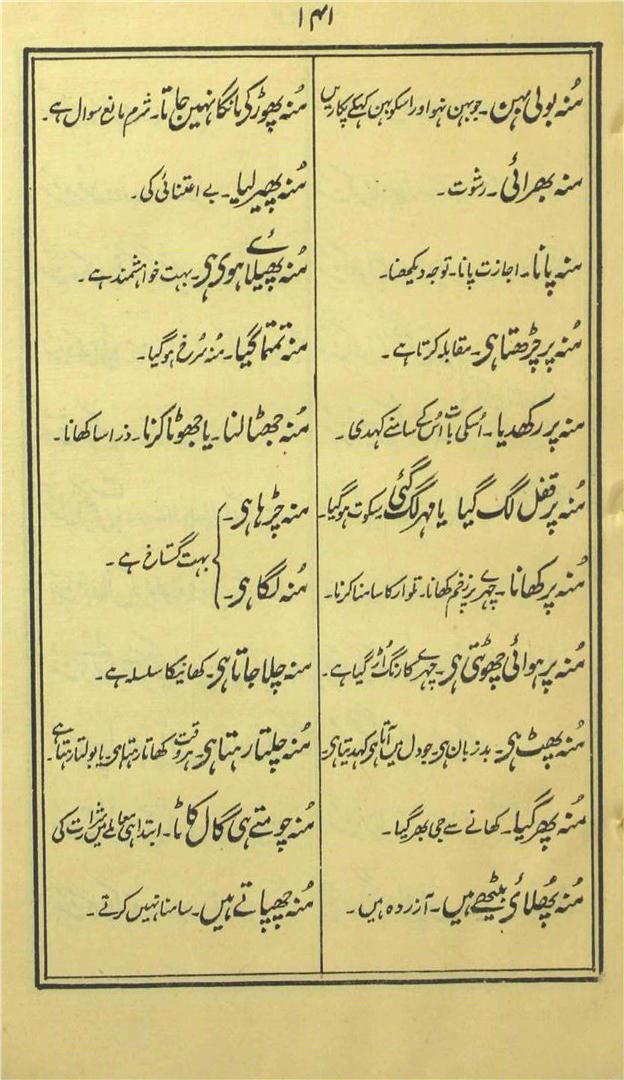 ۱۴۱
منہ بولی بہن۔ جو بہن نہو اور اسکو بہن کہکے پکاریں
منہ بھرائی۔ رشوت۔
منہ پانا۔ اجازت پانا۔ توجہ دیکھنا۔
مُنہ پر چڑھتا ہی۔ مقابلہ کرتا ہے۔
منہ پر رکھدیا۔ اُسکی بات اُس کے سامنے کہدی۔
مُنہ پر قفل لگ گیا یا مُہر لگ گئی۔ سکوت ہو گیا۔
مُنہ پر کھانا۔ چہرے پر زخم کھانا۔ تلوار کا سامنا کرنا۔
مُنہ پر ہوائی چھوٹتی ہی۔ چہرے کا رنگ اُڑ گیا ہے۔
مُنہ پھٹ ہی۔ بدزبان ہی جو دل میں آتا ہی کہدیتا ہی۔
مُنہ پھر گیا۔ کھانے سے جی بھر گیا۔
مُنہ پھلائے بیٹھے ہیں۔ آزردہ ہیں۔
مُنہ پھوڑ کی مانگا نہیں جاتا۔ شرم مانع سوال ہے۔
مُنہ پھیر لیا۔ بے اعتنائی کی۔
مُنہ پھیلائے ہوی ہی۔ بہت خواہشمند ہے۔
منہ تمتما گیا۔ مُنہ سُرخ ہو گیا۔
مُنہ جھٹالنا۔ یا جھوٹا کرنا۔ ذرا سا کھانا۔
منہ چڑہا ہی۔
مُنہ لگا ہی۔
بہت گستاخ ہے۔
منہ چلا جاتا ہی۔ کھانیکا سلسلہ ہے۔
مُنہ چلتا رہتا ہی۔ ہر وقت کھاتا رہتا ہی۔ یا بولتا رہتا ہے۔
مُنہ چومتے ہی گال کاٹا۔ ابتدا ہی معاملے میں شرارت کی
مُنہ چھپاتے ہیں۔ سامنا نہیں کرتے۔